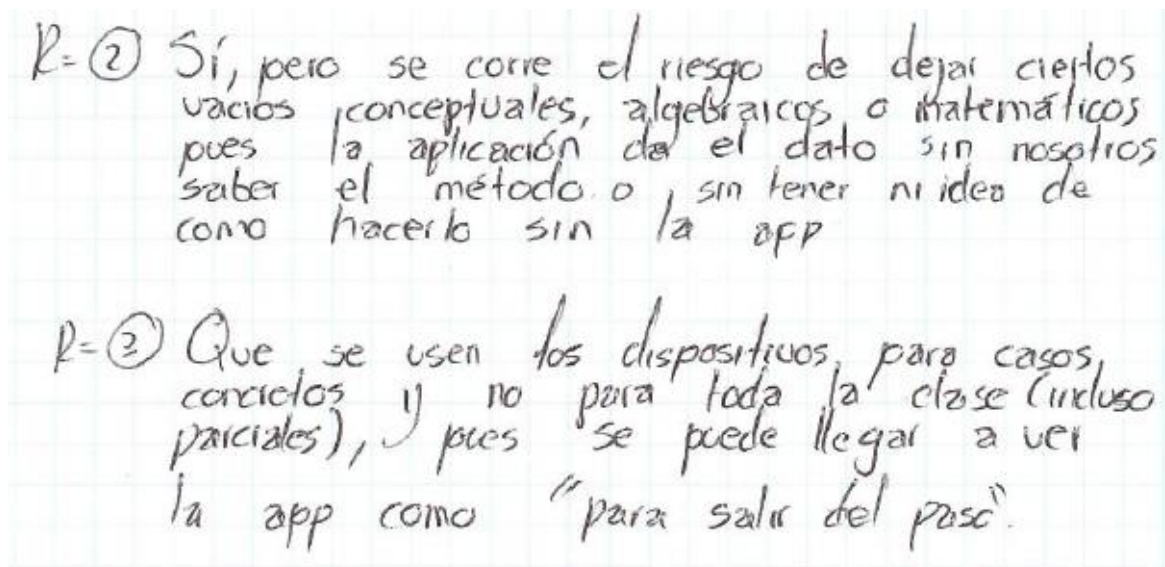 R=② Sí, pero se corre el riesgo de dejar ciertos
vacios conceptuales, algebraicos o matemáticos
pues la aplicación da el dato sin nosotros
saber el método o, sin tener ni idea de
como hacerlo sin la app
R=③ Que se usen los dispositivos, para casos
concretos y no para toda la clase (incluso
parciales), pues se puede llegar a ver
la app como "para salir del paso".